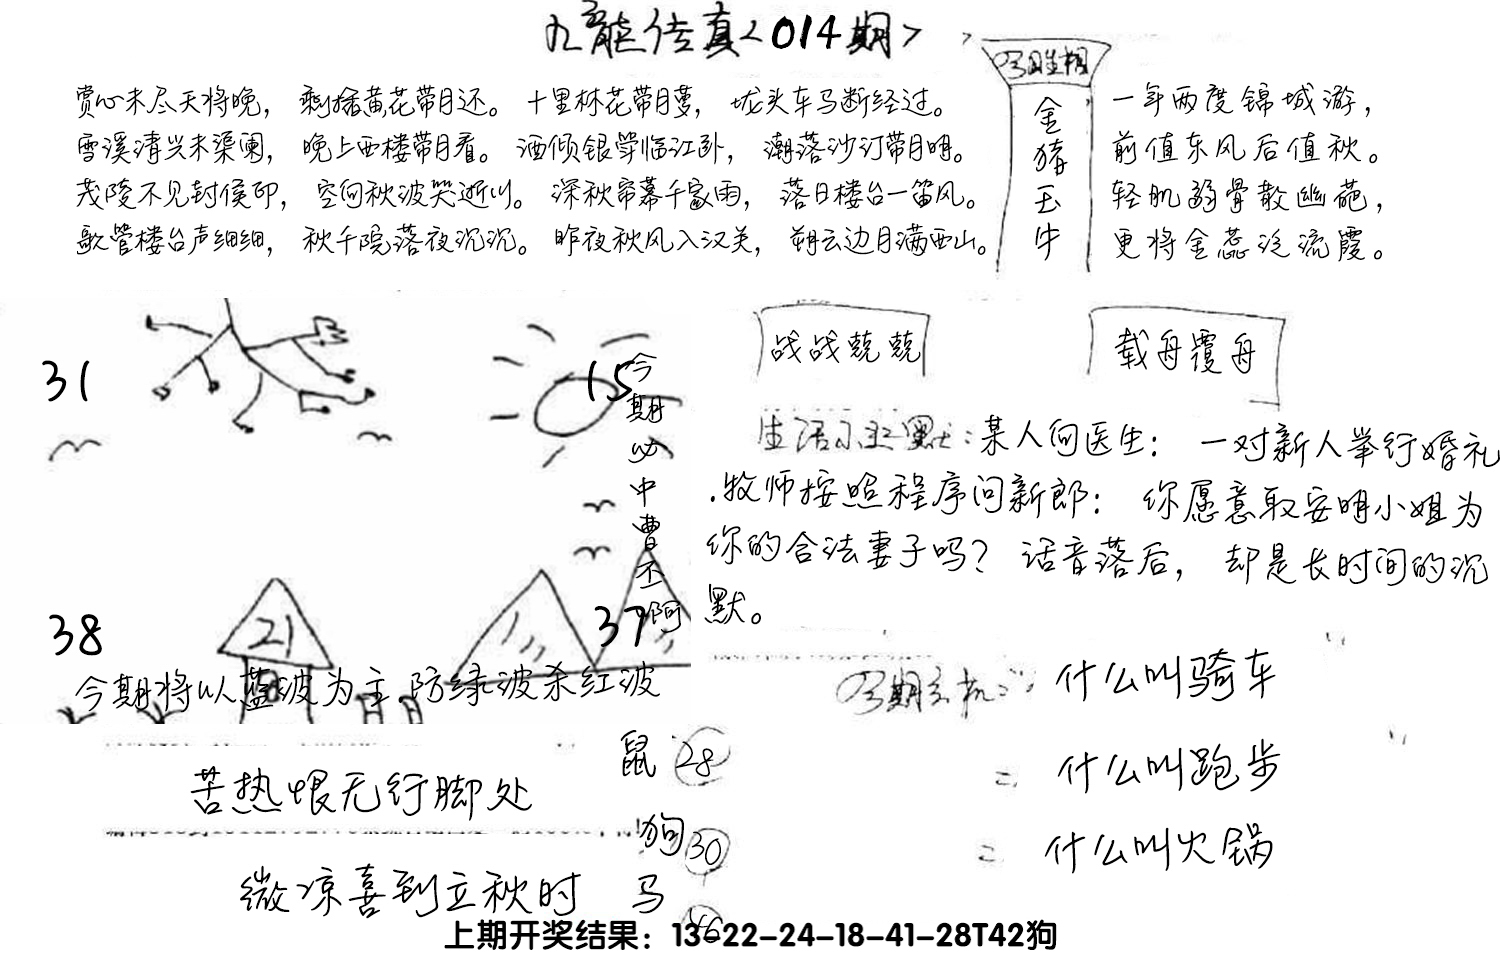 九龙传真<014期>
赏心未尽天将晚，剩插黄花带月还。十里林花带月萝，垅头车马断经过。
雪溪清兴未渠阑，晚上西楼带月看。酒倾银斝临江卧，潮落沙汀带月明。
茂陵不见封侯印，空向秋波哭逝川。深秋帘幕千家雨，落日楼台一笛风。
歌管楼台声细细，秋千院落夜沉沉。昨夜秋风入汉关，朔云边月满西山。
金
猪
玉
牛
一年两度锦城游，
前值东风后值秋。
轻肌弱骨散幽葩，
更将金蕊泛流霞。
31
15
38
21
37
今期必中曹丕阿
今期将以蓝波为主.防绿波杀红波
战战兢兢
载舟覆舟
某人问医生：一对新人举行婚礼
.牧师按照程序问新郎：你愿意取安明小姐为
你的合法妻子吗？话音落后，却是长时间的沉
默。
什么叫骑车
什么叫跑步
什么叫火锅
苦热恨无行脚处
微凉喜到立秋时
鼠 28
狗 30
马 46
上期开奖结果：13-22-24-18-41-28T42狗